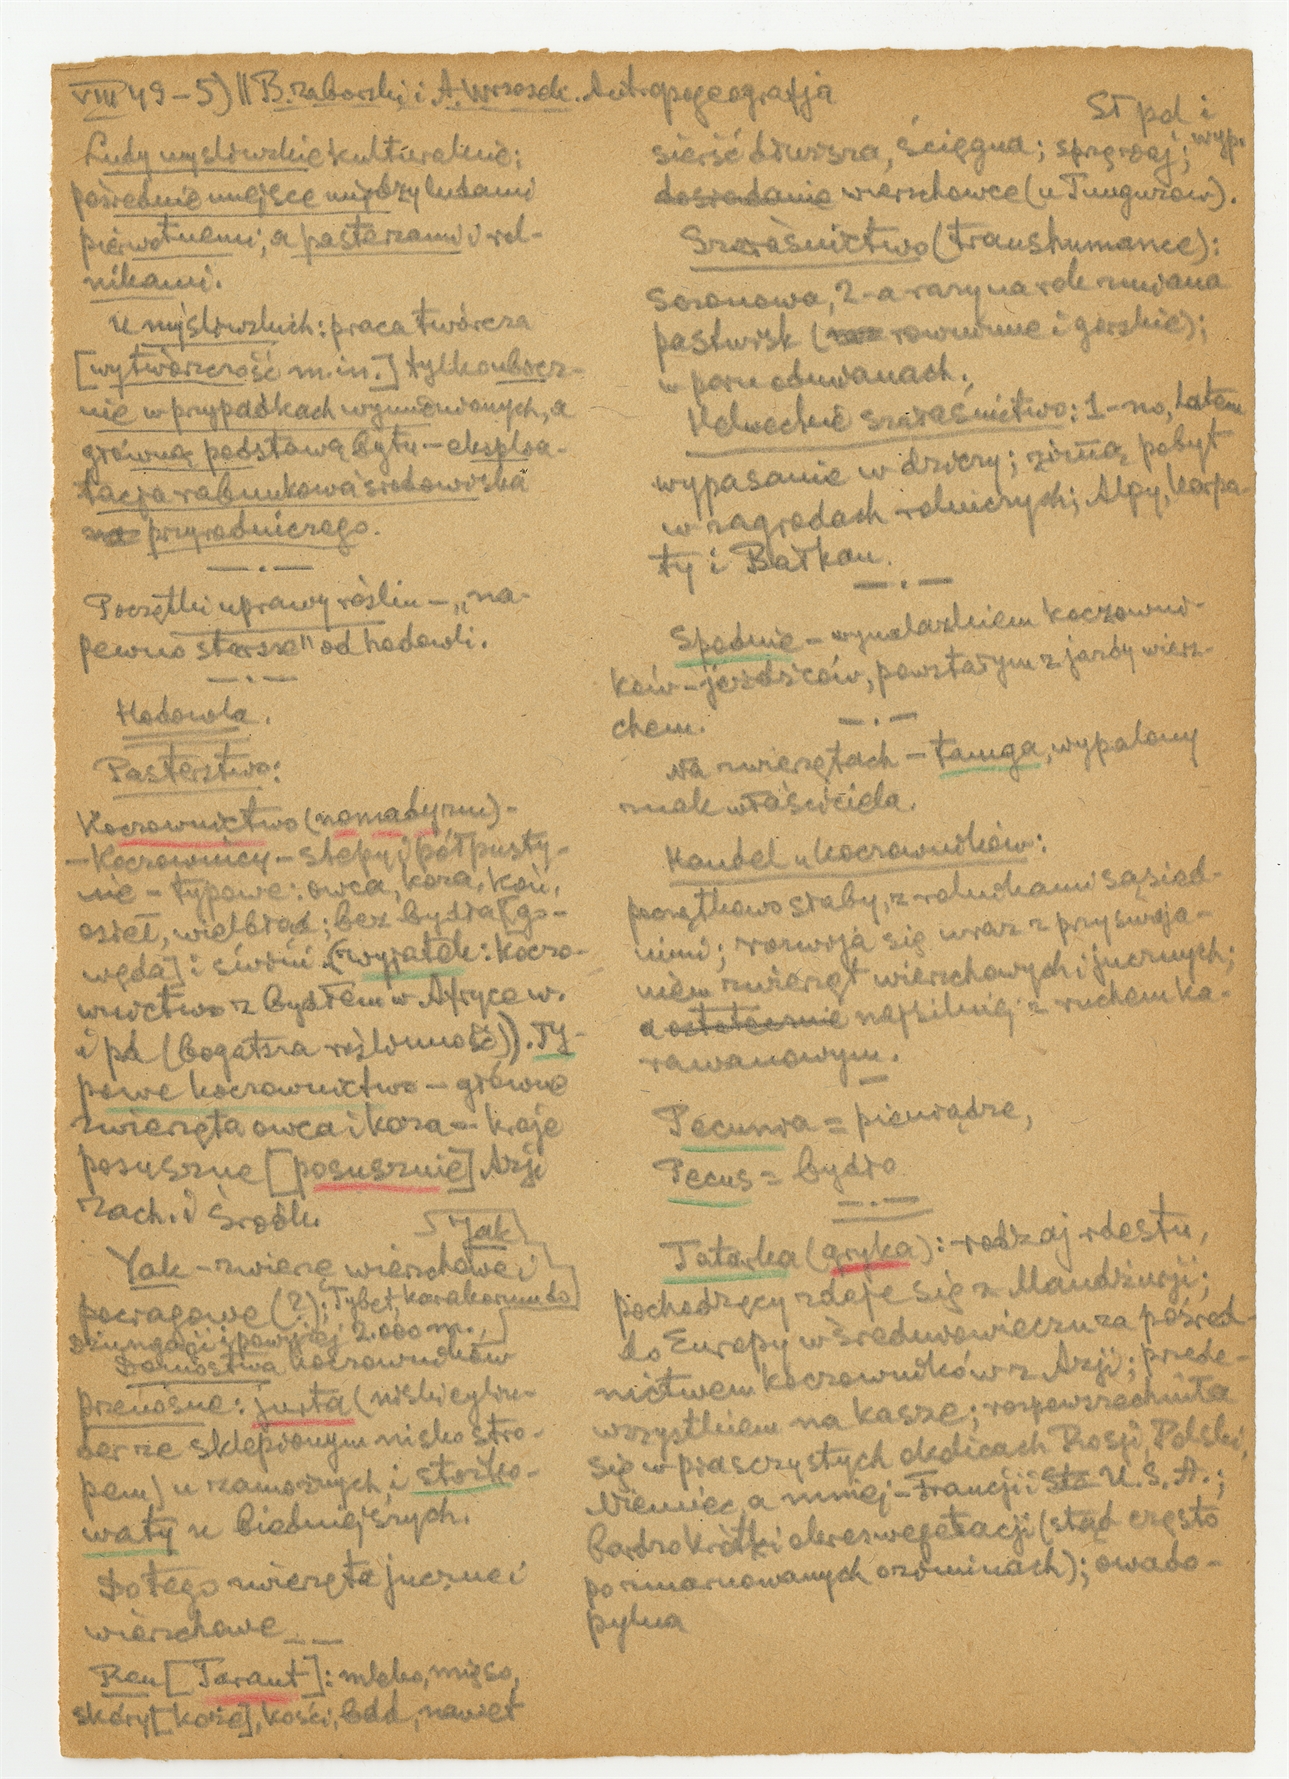 VIII 49 – 5) || B. Zaborski i A. Wrzosek. Antropogeografja
Ludy myśliwskie kulturalnie:
pośrednie miejsce między ludami
pierwotnemi, a pasterzami i rol-
nikami.
U myśliwskich: praca twórcza
[wytwórczość m. in.] tylko ubocz-
nie w przypadkach wymuszonych, a
główną podstawą bytu – eksploa-
tacja rabunkowa środowiska
przyrodniczego.
— . —
Początki uprawy roślin – „na-
pewno starsze" od hodowli.
— . —
Hodowla.
Pasterstwo:
Koczownictwo (nomadyzm) –
– Koczownicy – stepy i półpusty-
nie – typowe: owca, koza, koń,
osieł, wielbłąd; bez bydła [go-
węda] i świni. (wyjątek: koczo-
wnictwo z bydłem w Afryce w.
i pd (bogatsza roślinność)). Ty-
powe koczownictwo – główne
zwierzęta owca i koza – kraje
posuszne [posusznie] Azji
zach. i środk.
[Jak]
Yak – zwierzę wierzchowe i
pociągowe (?); Tybet, Karakorum do
Dżungarji i powyżej 2.000 m.
Domostwa koczowników
przenośne: jurta (niski cylin-
der ze sklepionym nisko stro-
pem) u zamożnych i stożko-
waty u biedniejszych.
Do tego zwierzęta juczne i
wierzchowe — —
Ren [Tarant]: mleko, mięso,
skóry [kożę], kości, łdd, nawet
St pd i
sierść dłuższa, ścięgna; sprzężaj; wyp.
dosiadanie wierzchowce (u Tunguzów).
Szałaśnictwo (transhumance):
Sezonowa, 2-a razy na rok zmiana
pastwisk (rowninne i górskie);
w paru odmianach.
Helweckie szałaśnictwo: 1-no, Latem
wypasanie w dziczy; zimą pobyt
w zagrodach rolniczych; Alpy, Karpa-
ty i Bałkan.
— . —
Spodnie – wynalazkiem koczowni-
ków-jeźdźców, powstałym z jazdy wierz-
chem.
— . —
Na zwierzętach – tamga, wypalony
znak właściciela.
Handel u koczowników:
początkowo słaby, z rolnikami sąsied-
nimi; rozwija się wraz z przyswoja-
niem zwierząt wierzchowych i jucznych;
a ostatecznie najsilniej z ruchem ka-
rawanowym.
—
Pecunia = pieniądze,
Pecus = bydło
— . —
Tatarka (gryka): rodzaj rdestu,
pochodzący zdaje się z Mandżurji;
do Europy w średniowieczu za pośred-
nictwem koczowników z Azji; przede-
wszystkiem na kaszę; rozpowszechniła
się w piasczystych okolicach Rosji, Polski,
Niemiec, a mniej – Francji i Sta U.S.A.;
bardzo krótki okres wegetacji (stąd często
po zmarnowanych oziminach); owado-
pylna